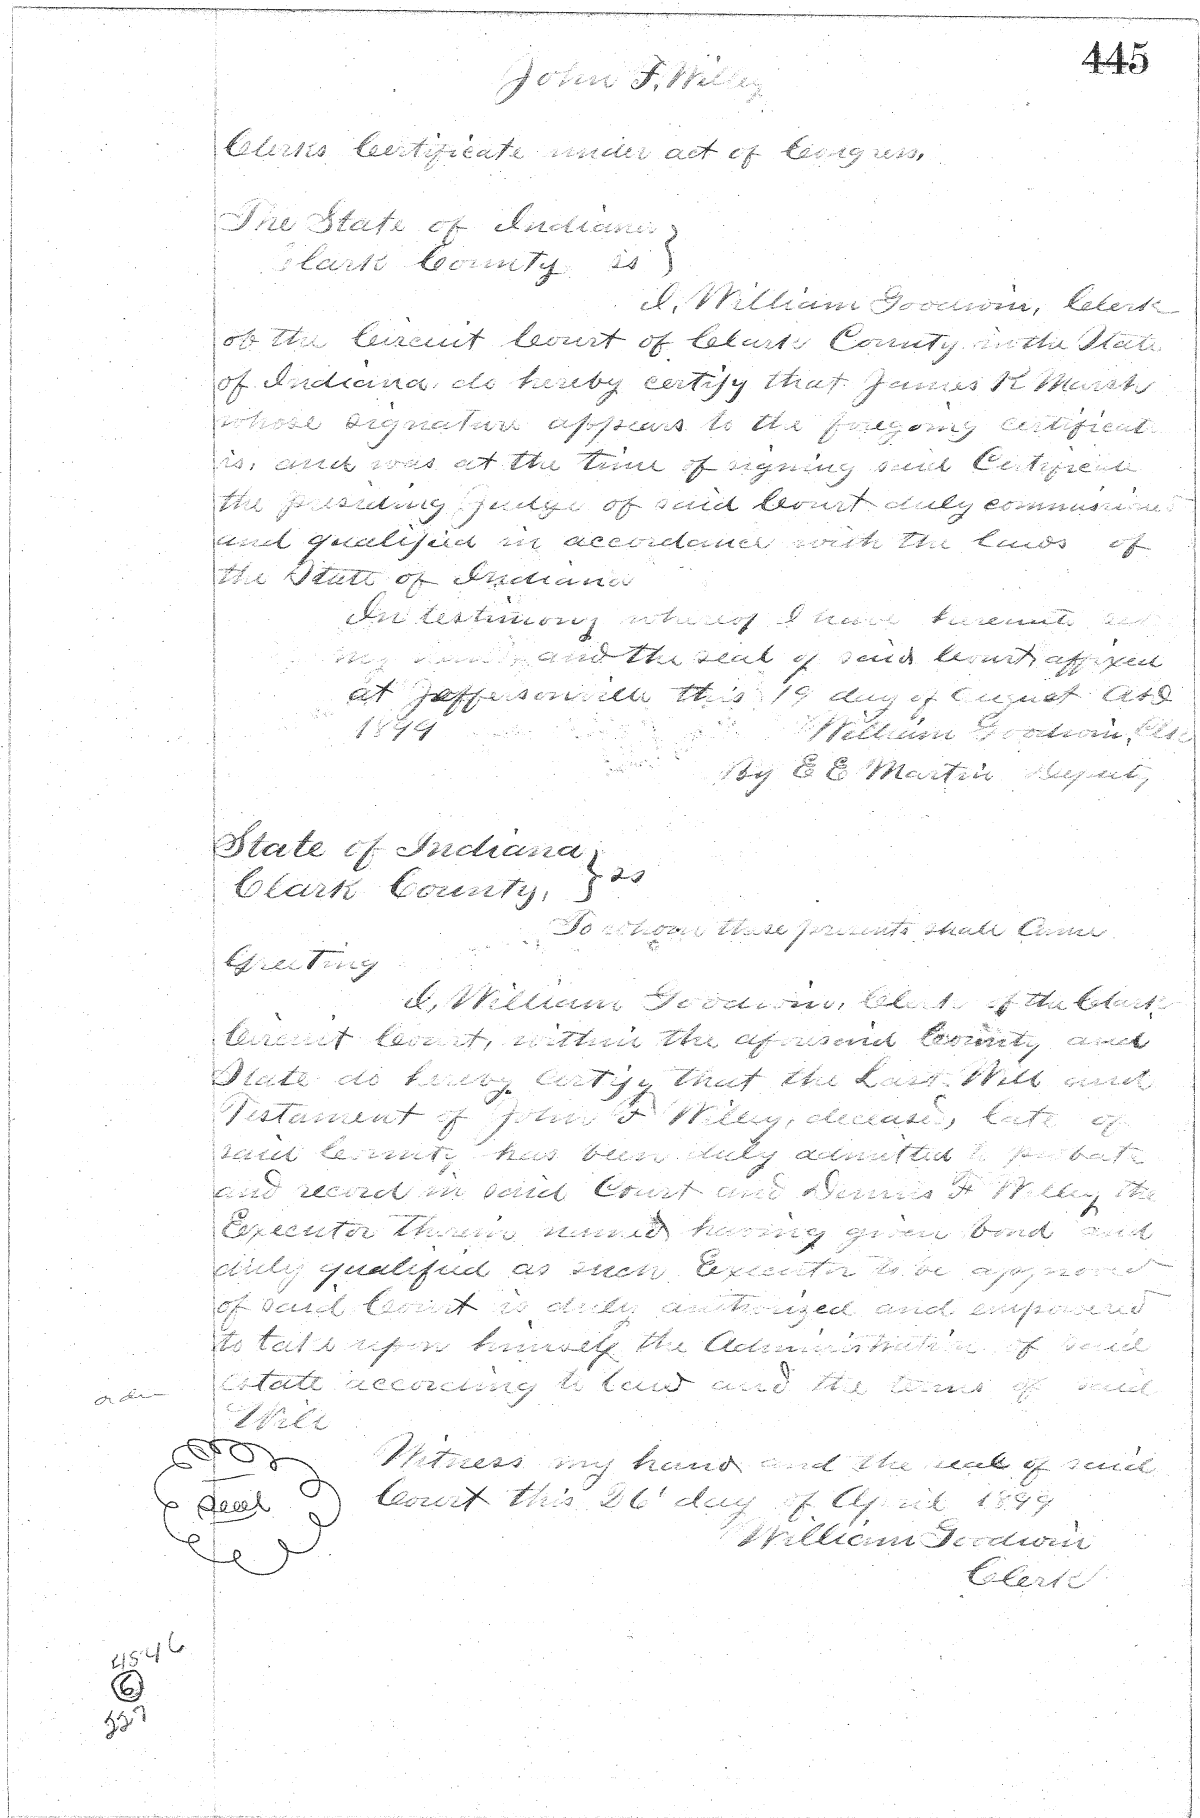 445
John F. Willey
Clerks Certificate under act of Congress,
The State of Indiana }
Clark County ss }
I, William Goodwin, Clerk
of the Circuit Court of Clark County in the State
of Indiana do hereby certify that James K Marsh
whose signature appears to the foregoing certificate
is, and was at the time of signing said Certificate
the presiding Judge of said Court duly commissioned
and qualified in accordance with the laws of
the State of Indiana
In testimony whereof I have hereunto set
my hand, and the seal of said Court, affixed
at Jeffersonville this 19 day of August A.D
1899 William Goodwin, Clk
By E E Martin Deputy
State of Indiana }
Clark County, } ss
To whom these presents shall Come
Greeting
I, William Goodwin, Clerk of the Clark
Circuit Court, within the aforesaid County and
State do hereby certify that the Last Will and
Testament of John F Willey, deceased, late of
said County has been duly admitted to probate
and record in said Court and Dennis F Willey the
Executor therein named having given bond and
duly qualified as such Executor to be approved
of said Court is duly authorized and empowered
to take upon himself the Administration of said
estate according to law and the terms of said
Will
Witness my hand and the seal of said
Seal
Court this 26' day of April 1899
William Goodwin
Clerk
4546
6
227